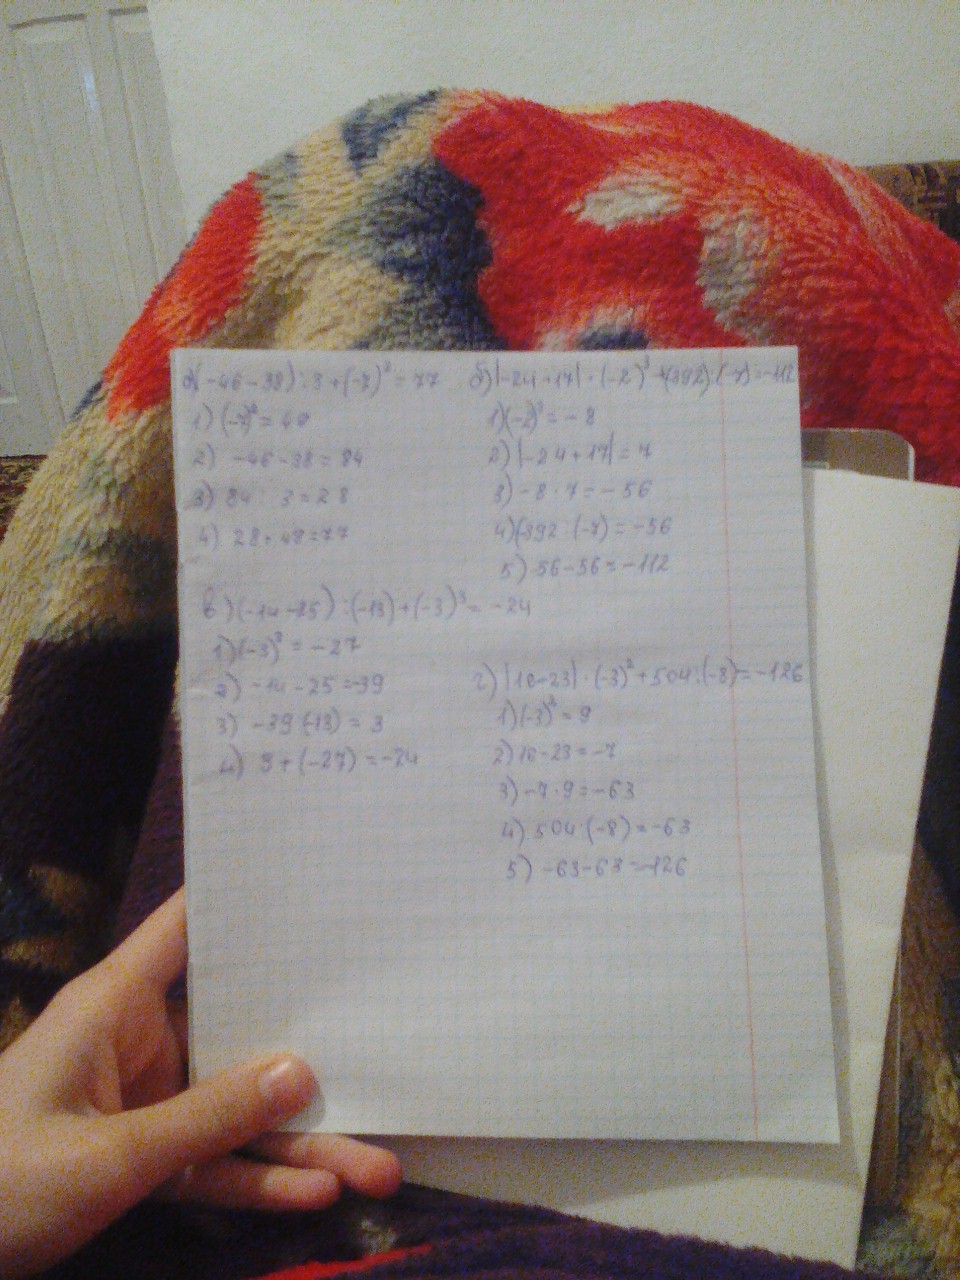 а)(-46-38):3+(-7)²=77
1) (-7)²=49
2) -46-38=84
3) 84 : 3=28
4) 28+49=77
б)|-24+17|·(-2)³+(392):(-7)=-112
1)(-2)³=-8
2)|-24+17|=7
3)-8·7=-56
4)(392:(-7)=-56
5)-56-56=-112
в)(-14-25):(-13)+(-3)³=-24
1)(-3)³=-27
2) -14-25=39
3) -39(-13)=3
4) 3+(-27)=-24
г)|16-23|·(-3)²+504:(-8)=-126
1)(-3)²=9
2)16-23=-7
3)-7·9=-63
4) 504:(-8)=-63
5) -63-63=-126